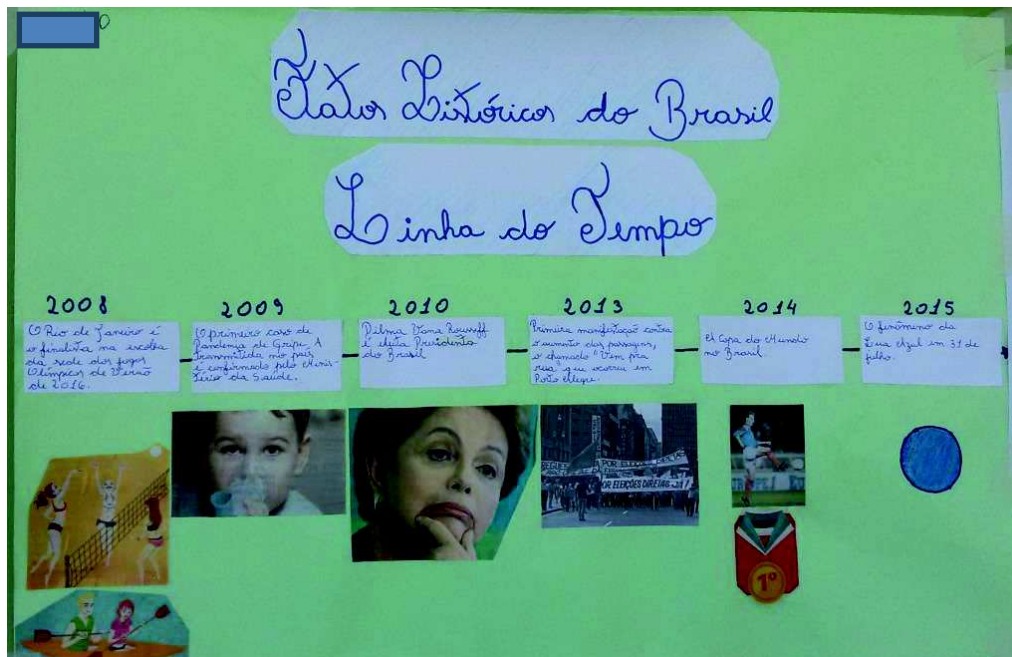 Fatos Históricos do Brasil
Linha do Tempo
2008
O Rio de Janeiro é
o finalista na escolha
da sede dos jogos
Olímpicos de Verão
de 2016.
2009
O primeiro caso de
Pandemia de Gripe A
transmitida no país
é confirmado pelo Minis-
tério da Saúde.
2010
Dilma Vana Rousseff
é eleita Presidenta
do Brasil
2013
Primeira manifestação contra
o aumento das passagens,
o chamado "Vem pra
rua" que ocorreu em
Porto Alegre.
2014
A Copa do Mundo
no Brasil.
2015
O fenômeno da
Lua Azul em 31 de
julho.
POR ELEIÇÕES DIRETAS JÁ!
1º